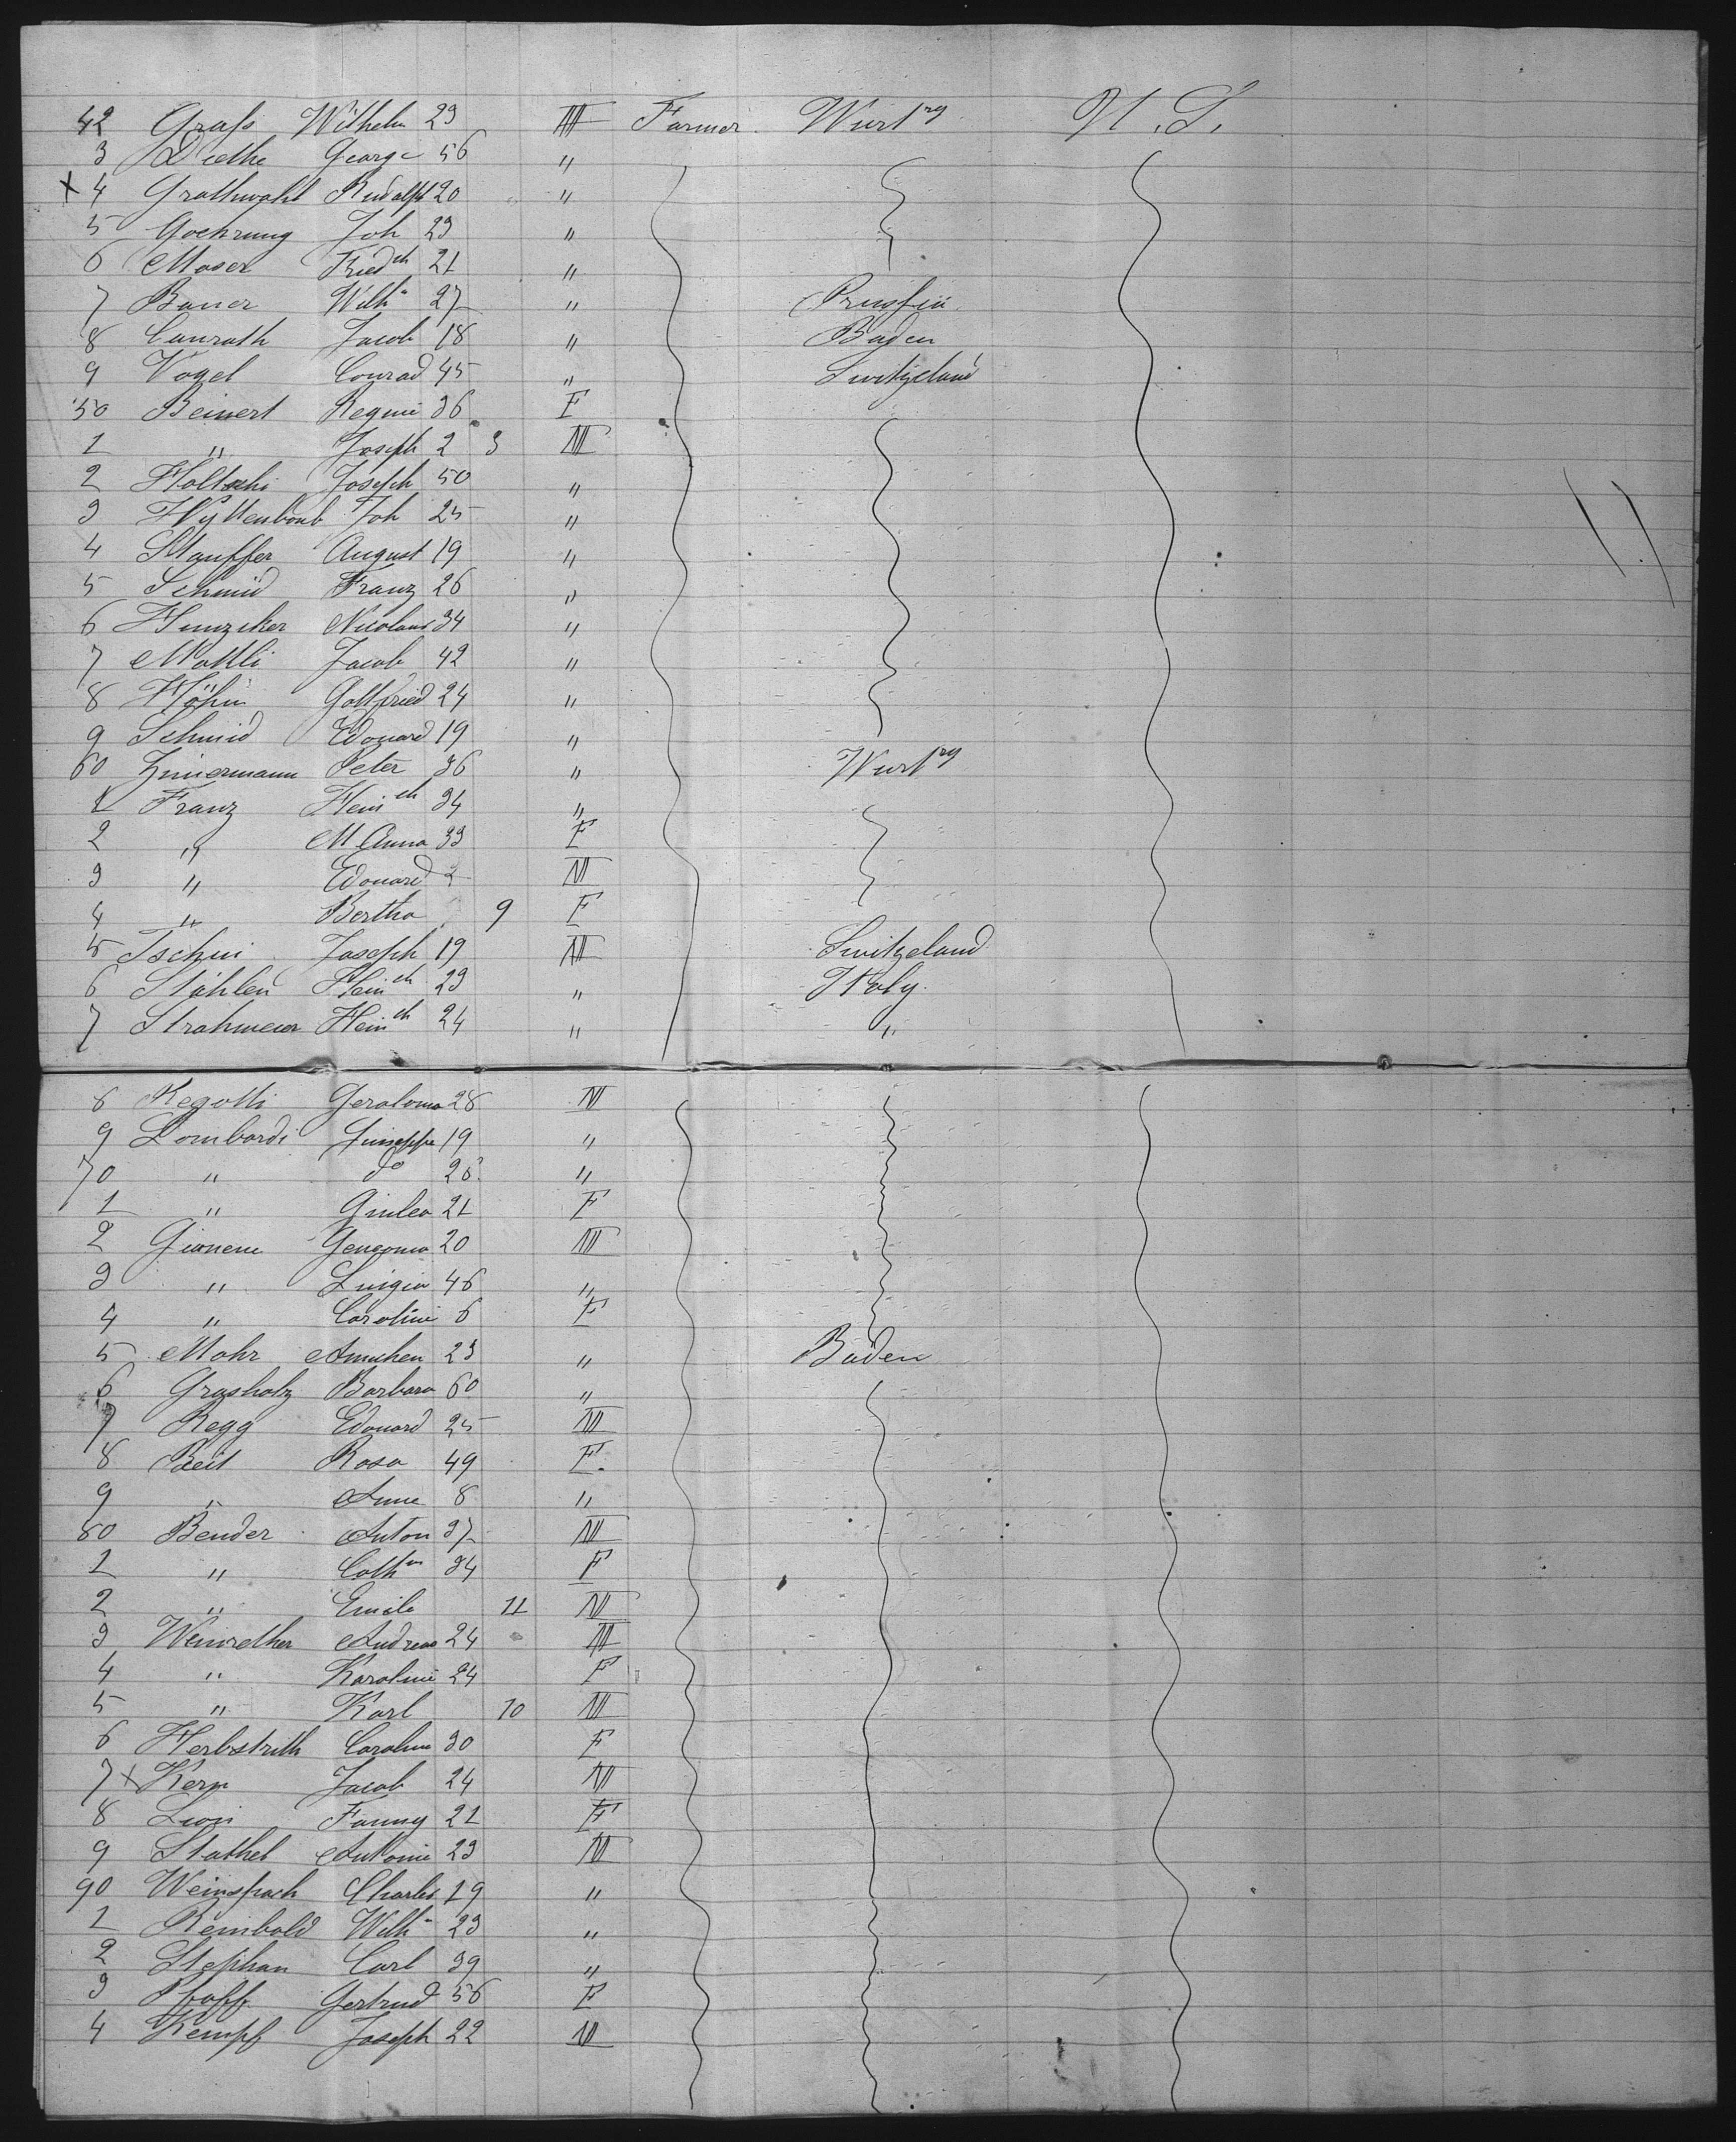 42 Grafs Wilhelm 23 M Farmer. Wurtrg U. S.
3 Diethe George 56 "
x 4 Grathwohl Rudolph 20 "
5 Goehrung Joh 23 "
6 Moser Friedch 21 "
7 Bauer Wilhm 27 " Prussia
8 Canrath Jacob 18 " Baden
9 Vogel Conrad 45 " Switzeland
50 Beinert Regine 36 F
1 " Joseph 2 3 M
2 Joseph 50 "
3 Joh 25 "
4 Stauffer August 19 "
5 Schmid Franz 26 "
6 Hunziker Nicolaus 34 "
7 Mattli Jacob 42 "
8 Höhn Gottfried 24 "
9 Schmid Edouard 19 "
60 Zimermann Peter 36 " Wurtrg
1 Franz Heinch 34 "
2 " M Anna 33 F
3 " Edouard 2 M
4 " Bertha 9 F
5 Tschui Joseph 19 M Switzeland
6 Stählen Heinch 23 " Italy.
7 Strohmeier Heinch 24 " "
8 Regotti Geralomo 28 M
9 Lombardi Guiseppe 19 "
70 " do 26 "
1 " Giulea 21 F
2 20 M
3 " Luigia 46 "
4 " Caroline 6 F
5 Mohr Annchen 23 " Baden
6 Grasholz Barbara 60 "
7 Regg Edouard 25 M
8 Rosa 49 F.
9 " Anne 8 "
80 Bender Anton 37 M
1 " Cathn 34 F
2 " Emile 11 M
3 Weinrether Andreas 24 M
4 " Karoline 24 F
5 " Karl 10 M
6 Herbstrith Caroline 30 F
7 x Kern Jacob 24 M
8 Fanny 21 F
9 Stathel Antonie 23 M
90 Weinspach Charles 19 "
1 Reinbold Wilhm 23 "
2 Stephan Carl 39 "
3 Pfaff Gertrud 56 F
4 Kempf Joseph 22 M